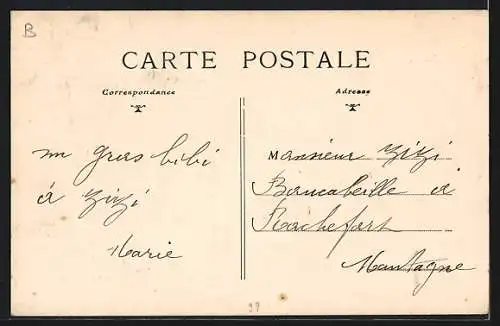 B
CARTE POSTALE
Correspondance
Adresse
un gros bibi
à Zizi
Marie
Monsieur Zizi
Bancabeille à
Rochefort
Montagne